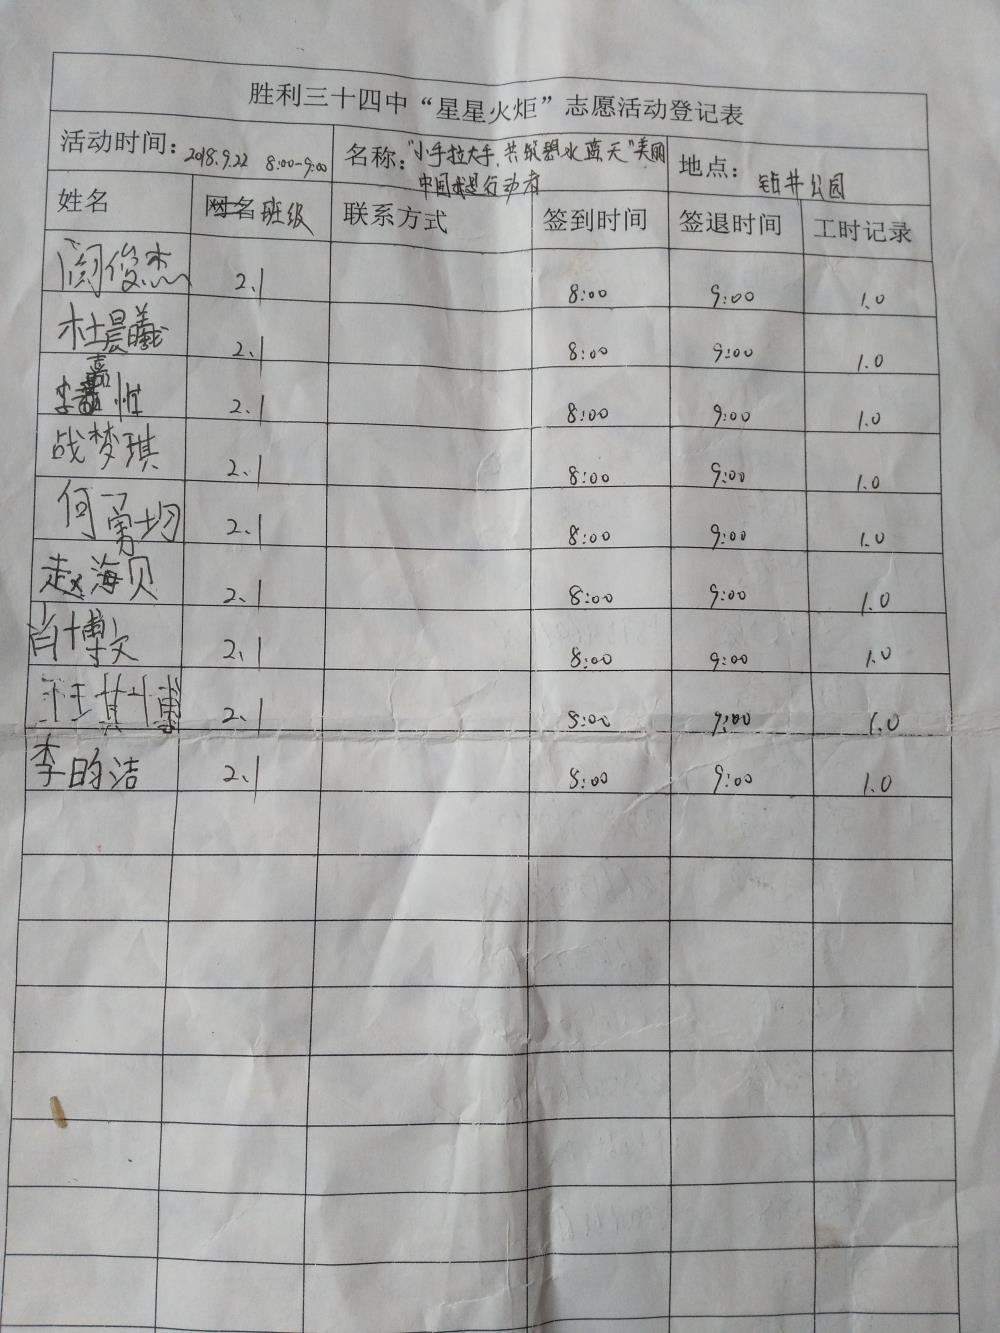 胜利三十四中“星星火炬”志愿活动登记表
活动时间：2018.9.22 8:00-9:00 名称：“小手拉大手，共筑碧水蓝天”美丽中国我是行动者 地点：钻井公园
姓名 网名班级 联系方式 签到时间 签退时间 工时记录
闫俊杰 2.1 8:00 9:00 1.0
杜晨曦 2.1 8:00 9:00 1.0
李嘉 2.1 8:00 9:00 1.0
战梦琪 2.1 8:00 9:00 1.0
何勇均 2.1 8:00 9:00 1.0
赵海贝 2.1 8:00 9:00 1.0
肖博文 2.1 8:00 9:00 1.0
2.1 8:00 9:00 1.0
李昀洁 2.1 8:00 9:00 1.0